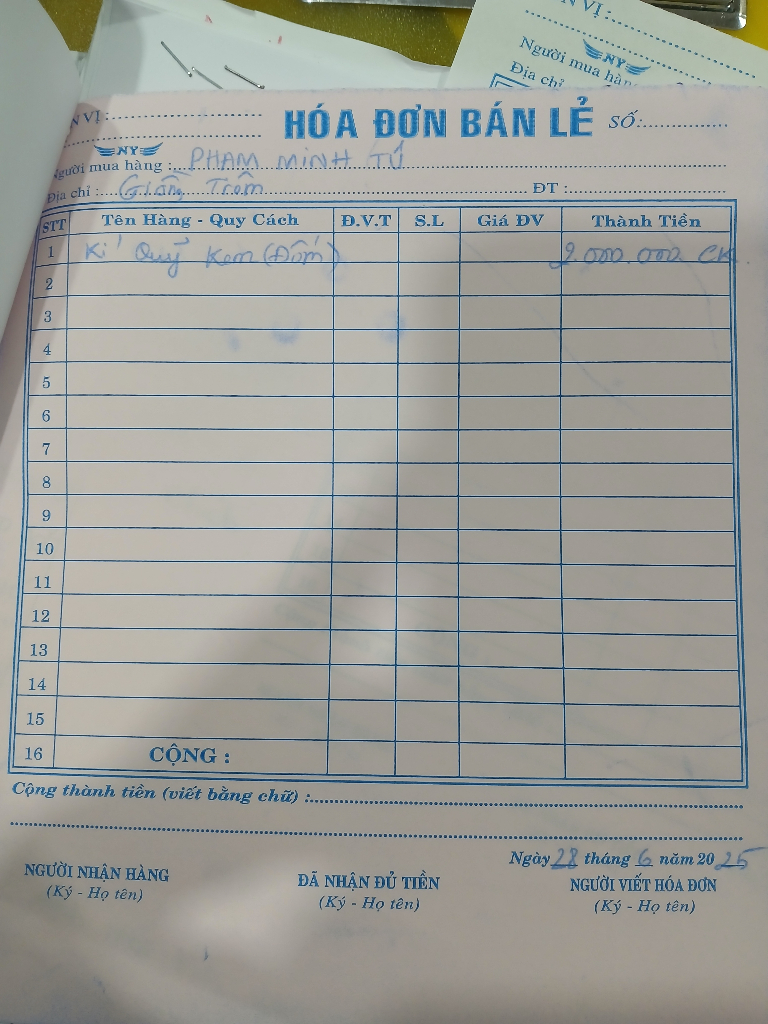 N VỊ:
NY
Người mua hàng
Địa chỉ
N VỊ:
HÓA ĐƠN BÁN LẺ SỐ:
NY
Người mua hàng : PHẠM MINH TÚ
Địa chỉ : Giồng Trôm ĐT :
STT Tên Hàng - Quy Cách Đ.V.T S.L Giá ĐV Thành Tiền
1 Kí Quỹ Kem (Đốm) 2.000.000 CK
2
3
4
5
6
7
8
9
10
11
12
13
14
15
16 CỘNG :
Cộng thành tiền (viết bằng chữ) :
Ngày 28 tháng 6 năm 2025
NGƯỜI NHẬN HÀNG ĐÃ NHẬN ĐỦ TIỀN NGƯỜI VIẾT HÓA ĐƠN
(Ký - Họ tên) (Ký - Họ tên) (Ký - Họ tên)